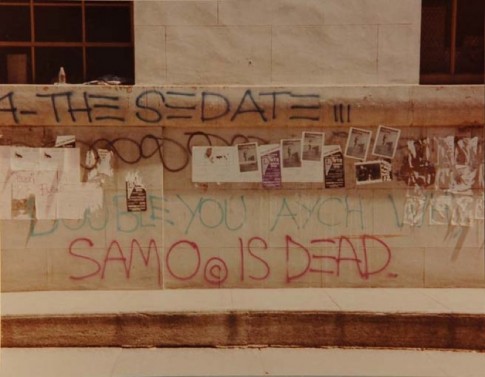 A-THE SEDATE !!!
DOUBLE YOU AYCH
SAMO© IS DEAD.